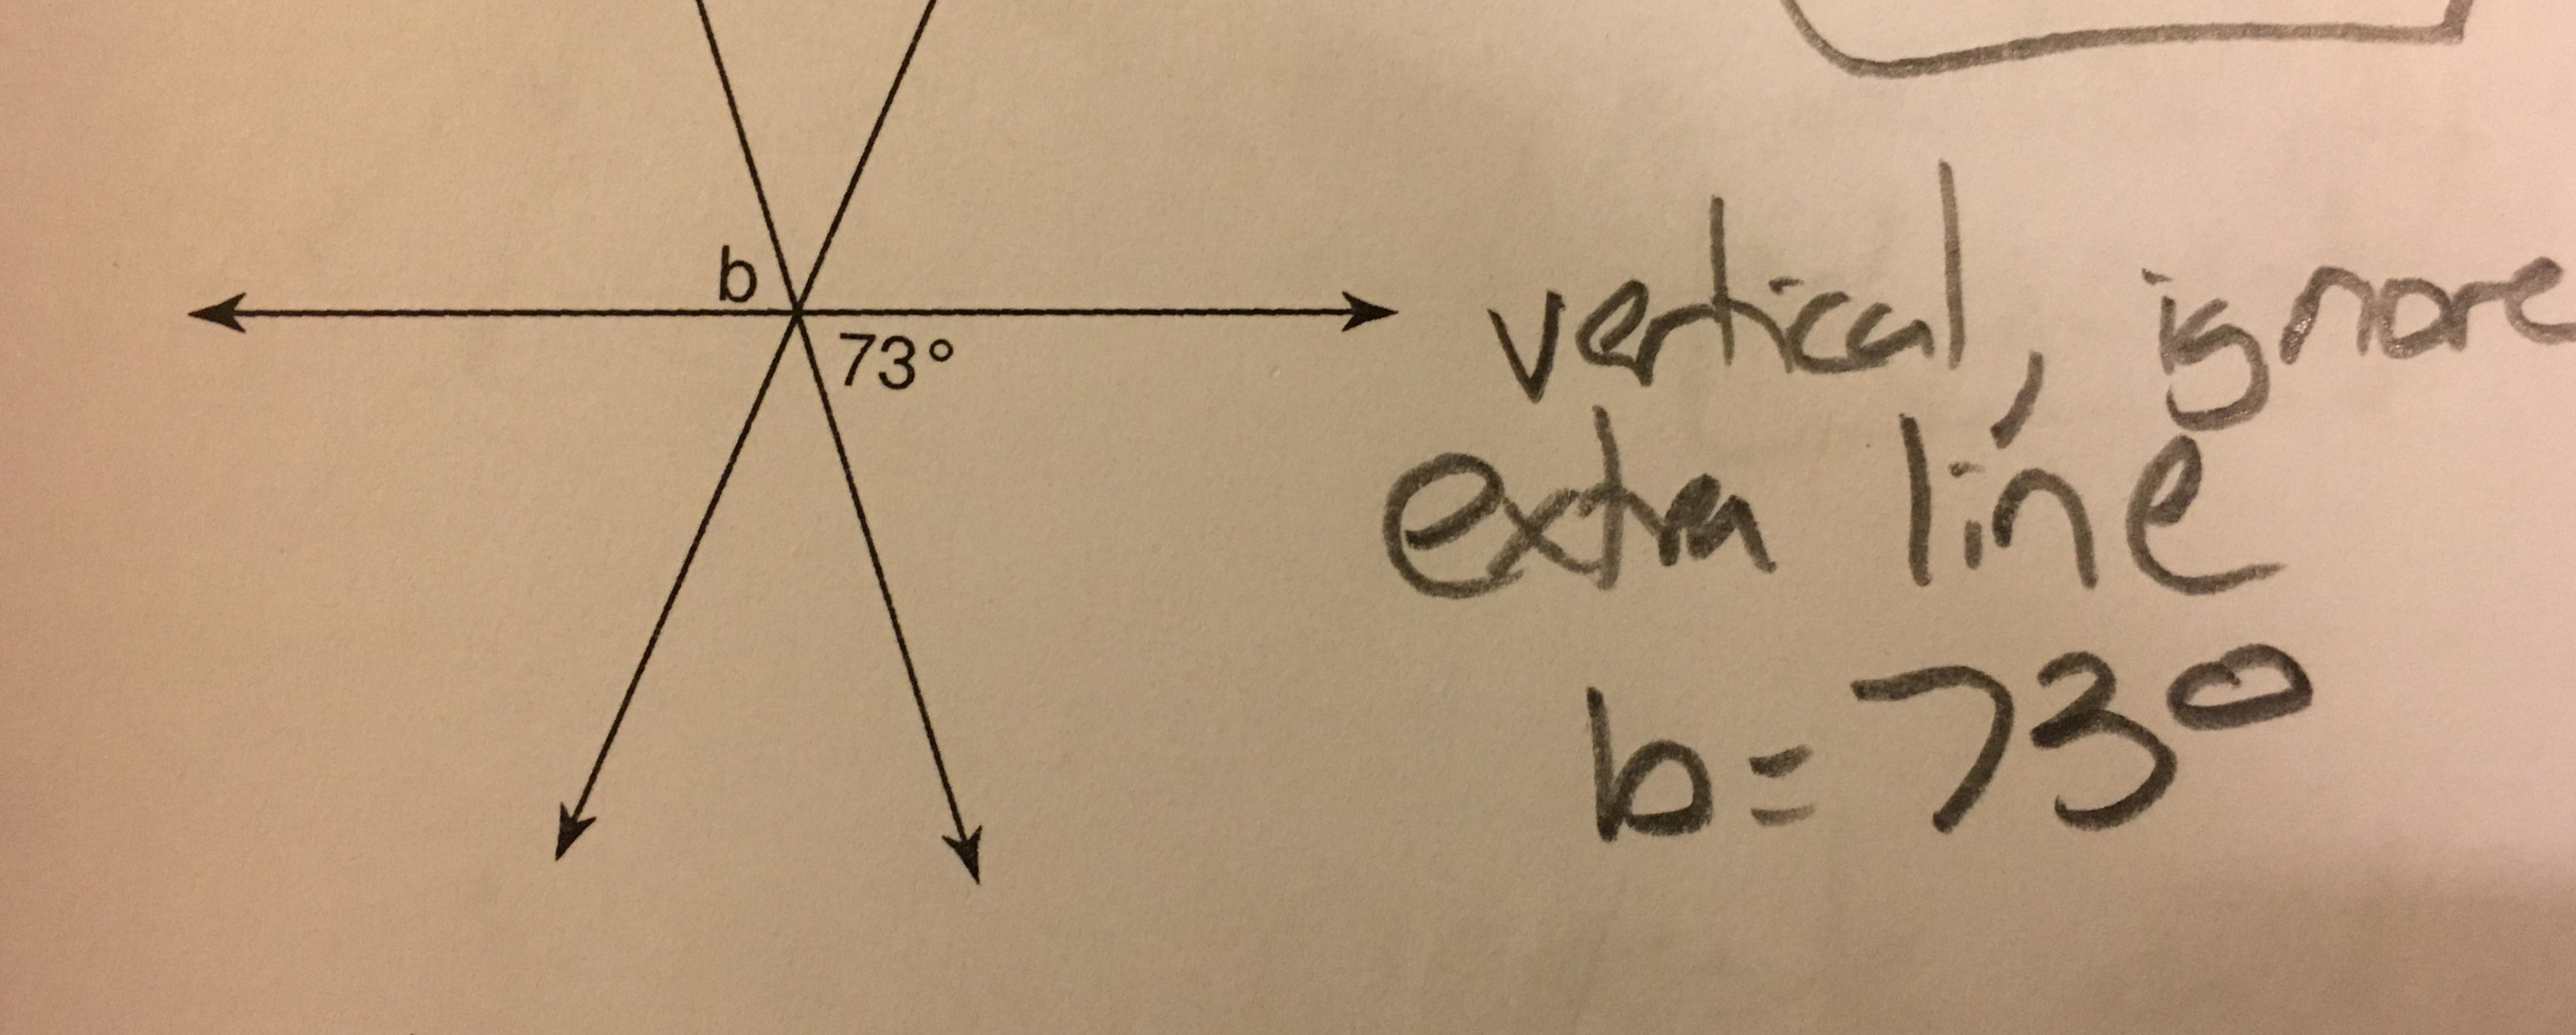 b
73°
vertical, ignore
extra line
b=73°